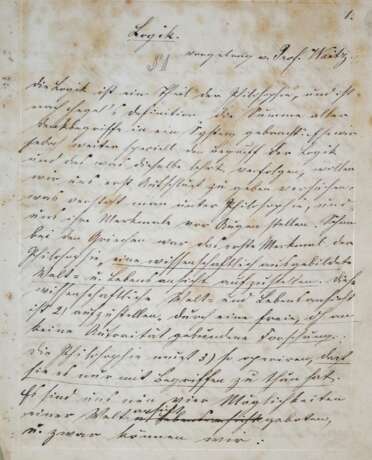 1.
Logik.
§ 1 vorgetragen v. Prof. Waitz.
Die Logik ist ein Theil der Philosophie, und ist
nach Hegel's Definition die Summe aller
Denkbegriffe in ein System gebracht. Ehe wir
jedoch weiter speciell den Begriff der Logik
und das was dieselbe lehrt verfolgen, wollen
wir uns erst Aufschluß zu geben versuchen,
was versteht man unter Philosophie, und
uns ihre Merkmale vor Augen stellen. Schon
bei den Griechen war das erste Merkmal der
Philosophie, eine wissenschaftlich ausgebildete
Welt- u Lebensansicht aufzustellen. Diese
wissenschaftliche Welt- und Lebensansicht
ist 2) aufzustellen, durch eine freie, an
keine Autorität gebundene Forschung.
Die Philosophie muß 3) so operiren, daß
sie es nur mit Begriffen zu thun hat.
Es sind uns nun vier Möglichkeiten
einer Weltansicht geboten,
u. zwar können wir: